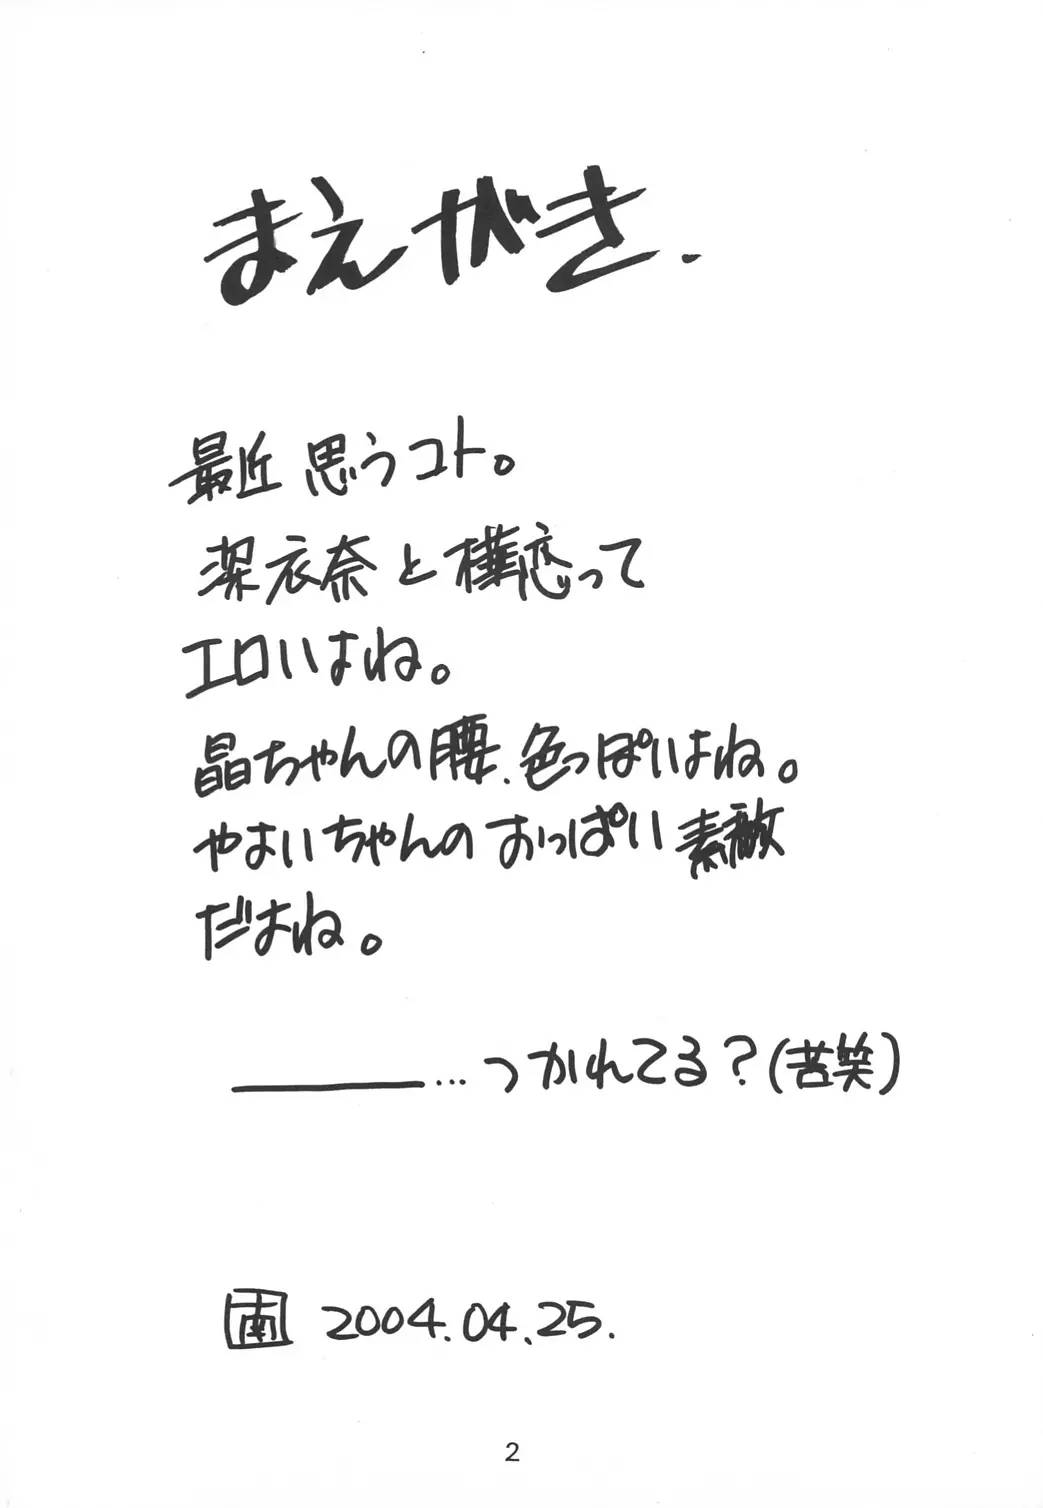 まえがき.
最近 思うコト。
深衣奈と樺恋って
エロいよね。
晶ちゃんの腰、色っぽいよね。
やよいちゃんのおっぱい素敵
だよね。
――――…つかれてる？(苦笑)
南 2004.04.25.
2